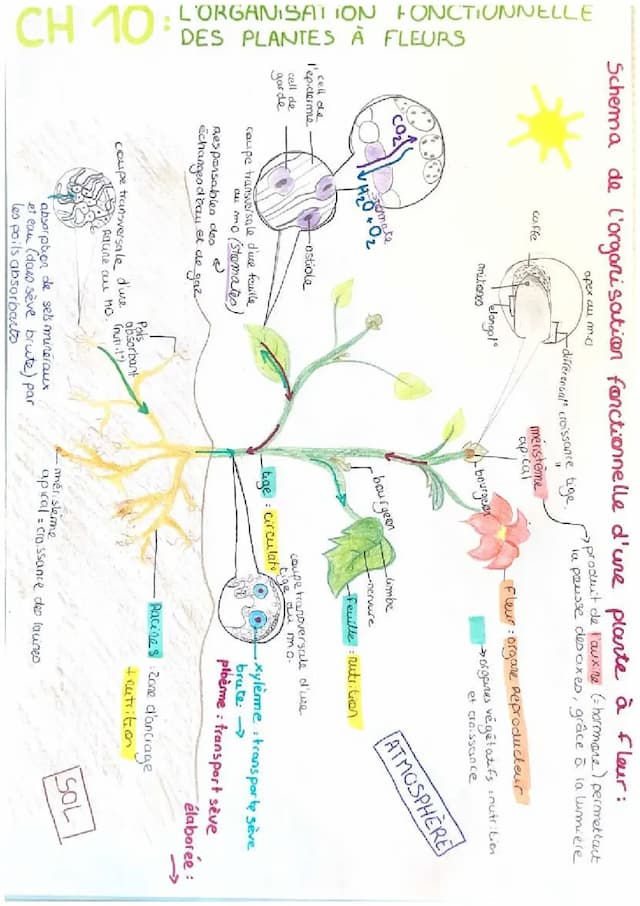 CH 10 : L'ORGANISATION FONCTIONNELLE
DES PLANTES À FLEURS
Schema de l'organisation fonctionnelle d'une plante à fleur :
coiffe
apex au m.o
mitoses
élongat°
différenciat° croissance "tige"
méristème
apical
→ produit de l'auxine (= hormone) permettant
la pousse des axes, grâce à la lumière
bourgeon
Fleur : organe REproducteur
→ organes végétatifs : nutrition
et croissance
CO2
H2O + O2
stomate
cell de
l'épiderme
cell de
garde
ostiole
coupe transversale d'une feuille
au mO (stomates)
Responsables des
échanges d'eau et de gaz
bourgeon
limbe
nervure
feuille : nutrition
ATMOSPHÈRE
tige : circulat°
coupe transversale d'une
tige au m.O.
xylème : transporte sève
brute : →
phloème : transport sève
élaborée : →
coupe transversale d'une
Racine au MO.
Poils
absorbant
(nutrit°)
absorption de sels minéraux
et eau (dans sève brute) par
les poils absorbants
méristème
apical = croissance de racines
Racines : zone d'ancrage
+ nutrition
SOL